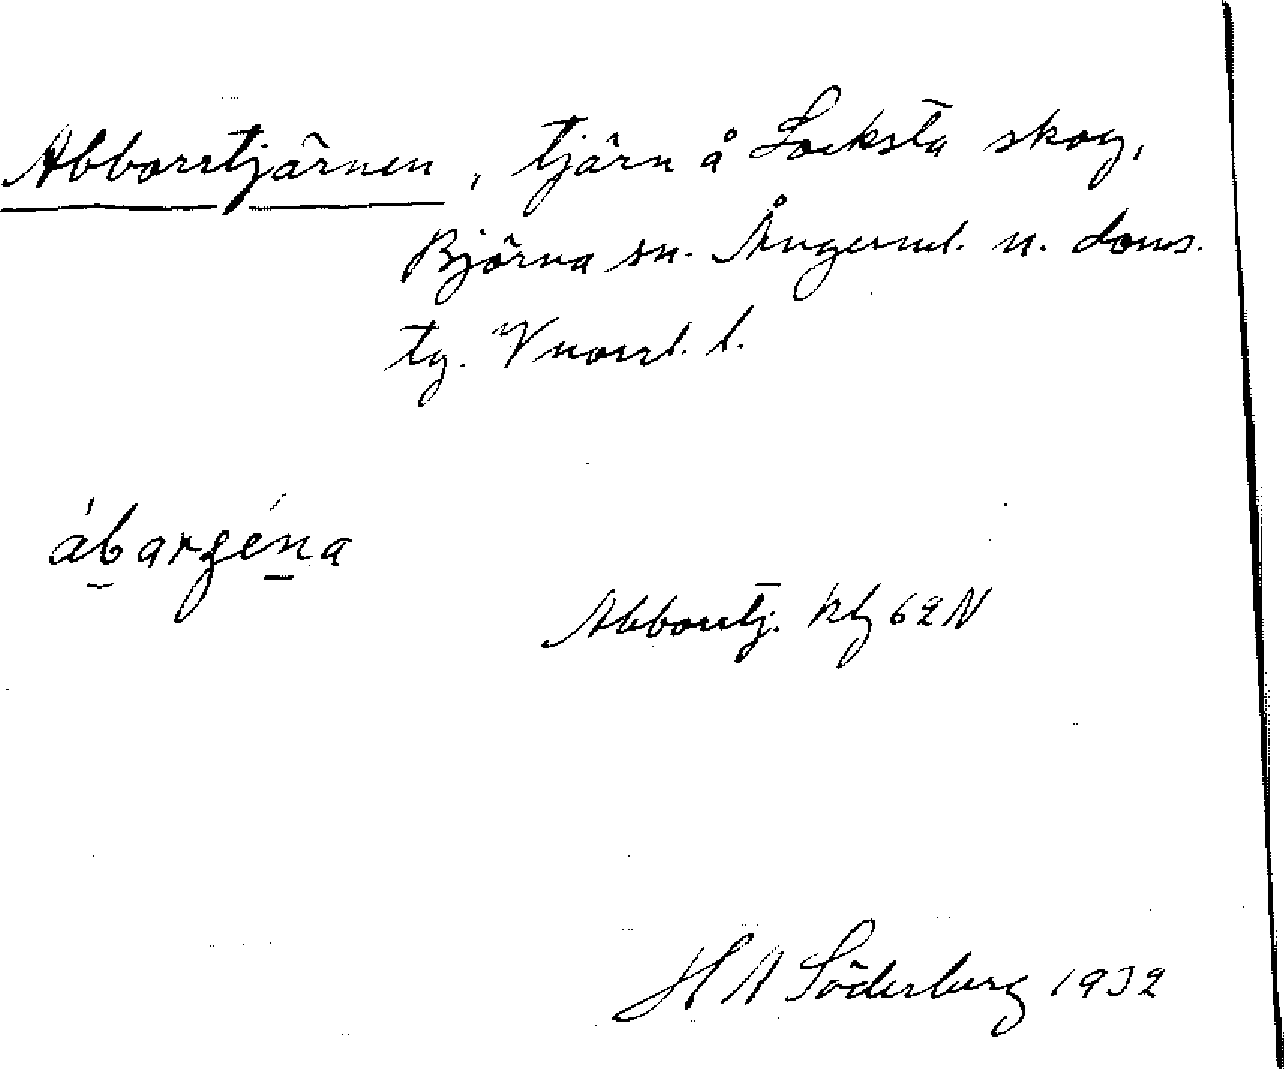 Abborrtjärnen, tjärn å Locksta skog,
Björna sn. Ångerml. n. doms.
tg. Vnorrl. l.
ábarʂéna
Abborrtj. kbl 62N
H A Söderberg 1932